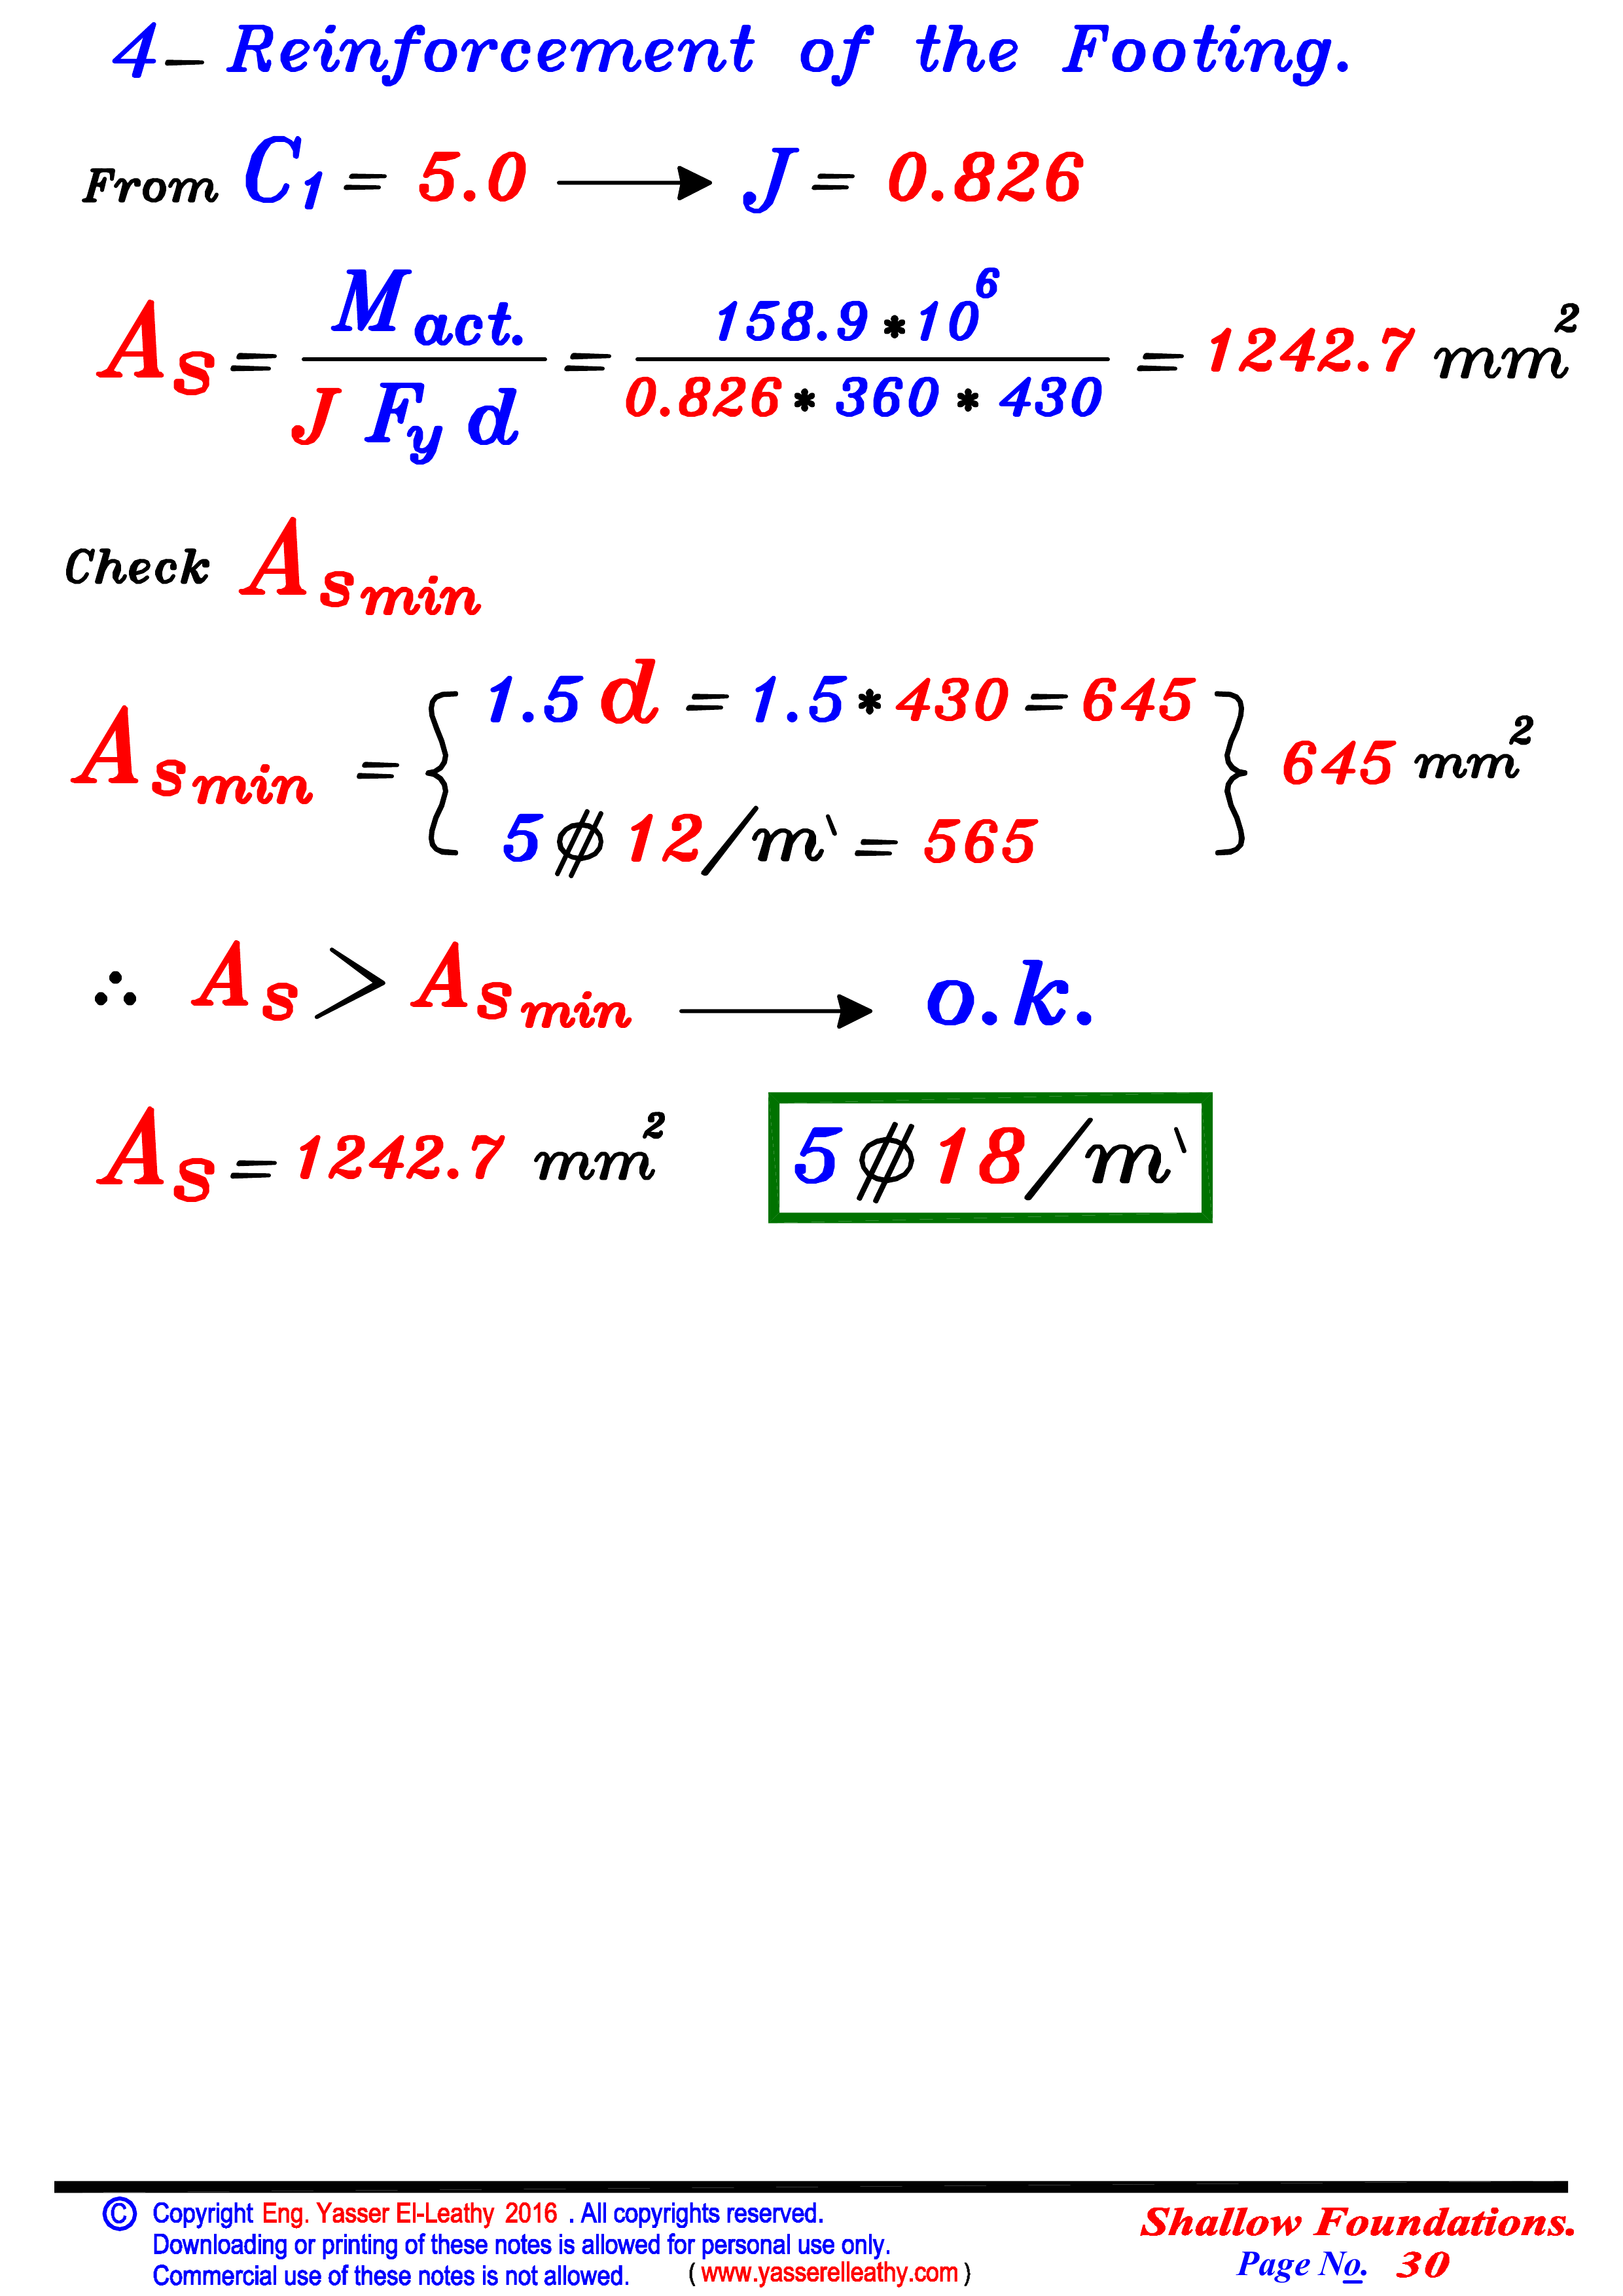 4- Reinforcement of the Footing.
From C1 = 5.0 → J = 0.826
As = Mact. / J Fy d = 158.9 * 10^6 / 0.826 * 360 * 430 = 1242.7 mm²
Check As min
As min = { 1.5 d = 1.5 * 430 = 645
5 ϕ 12/m` = 565 } 645 mm²
∴ As > As min → o.k.
As = 1242.7 mm² 5 ϕ 18/m`
© Copyright Eng. Yasser El-Leathy 2016 . All copyrights reserved.
Downloading or printing of these notes is allowed for personal use only.
Commercial use of these notes is not allowed. ( www.yasserelleathy.com )
Shallow Foundations.
Page No. 30